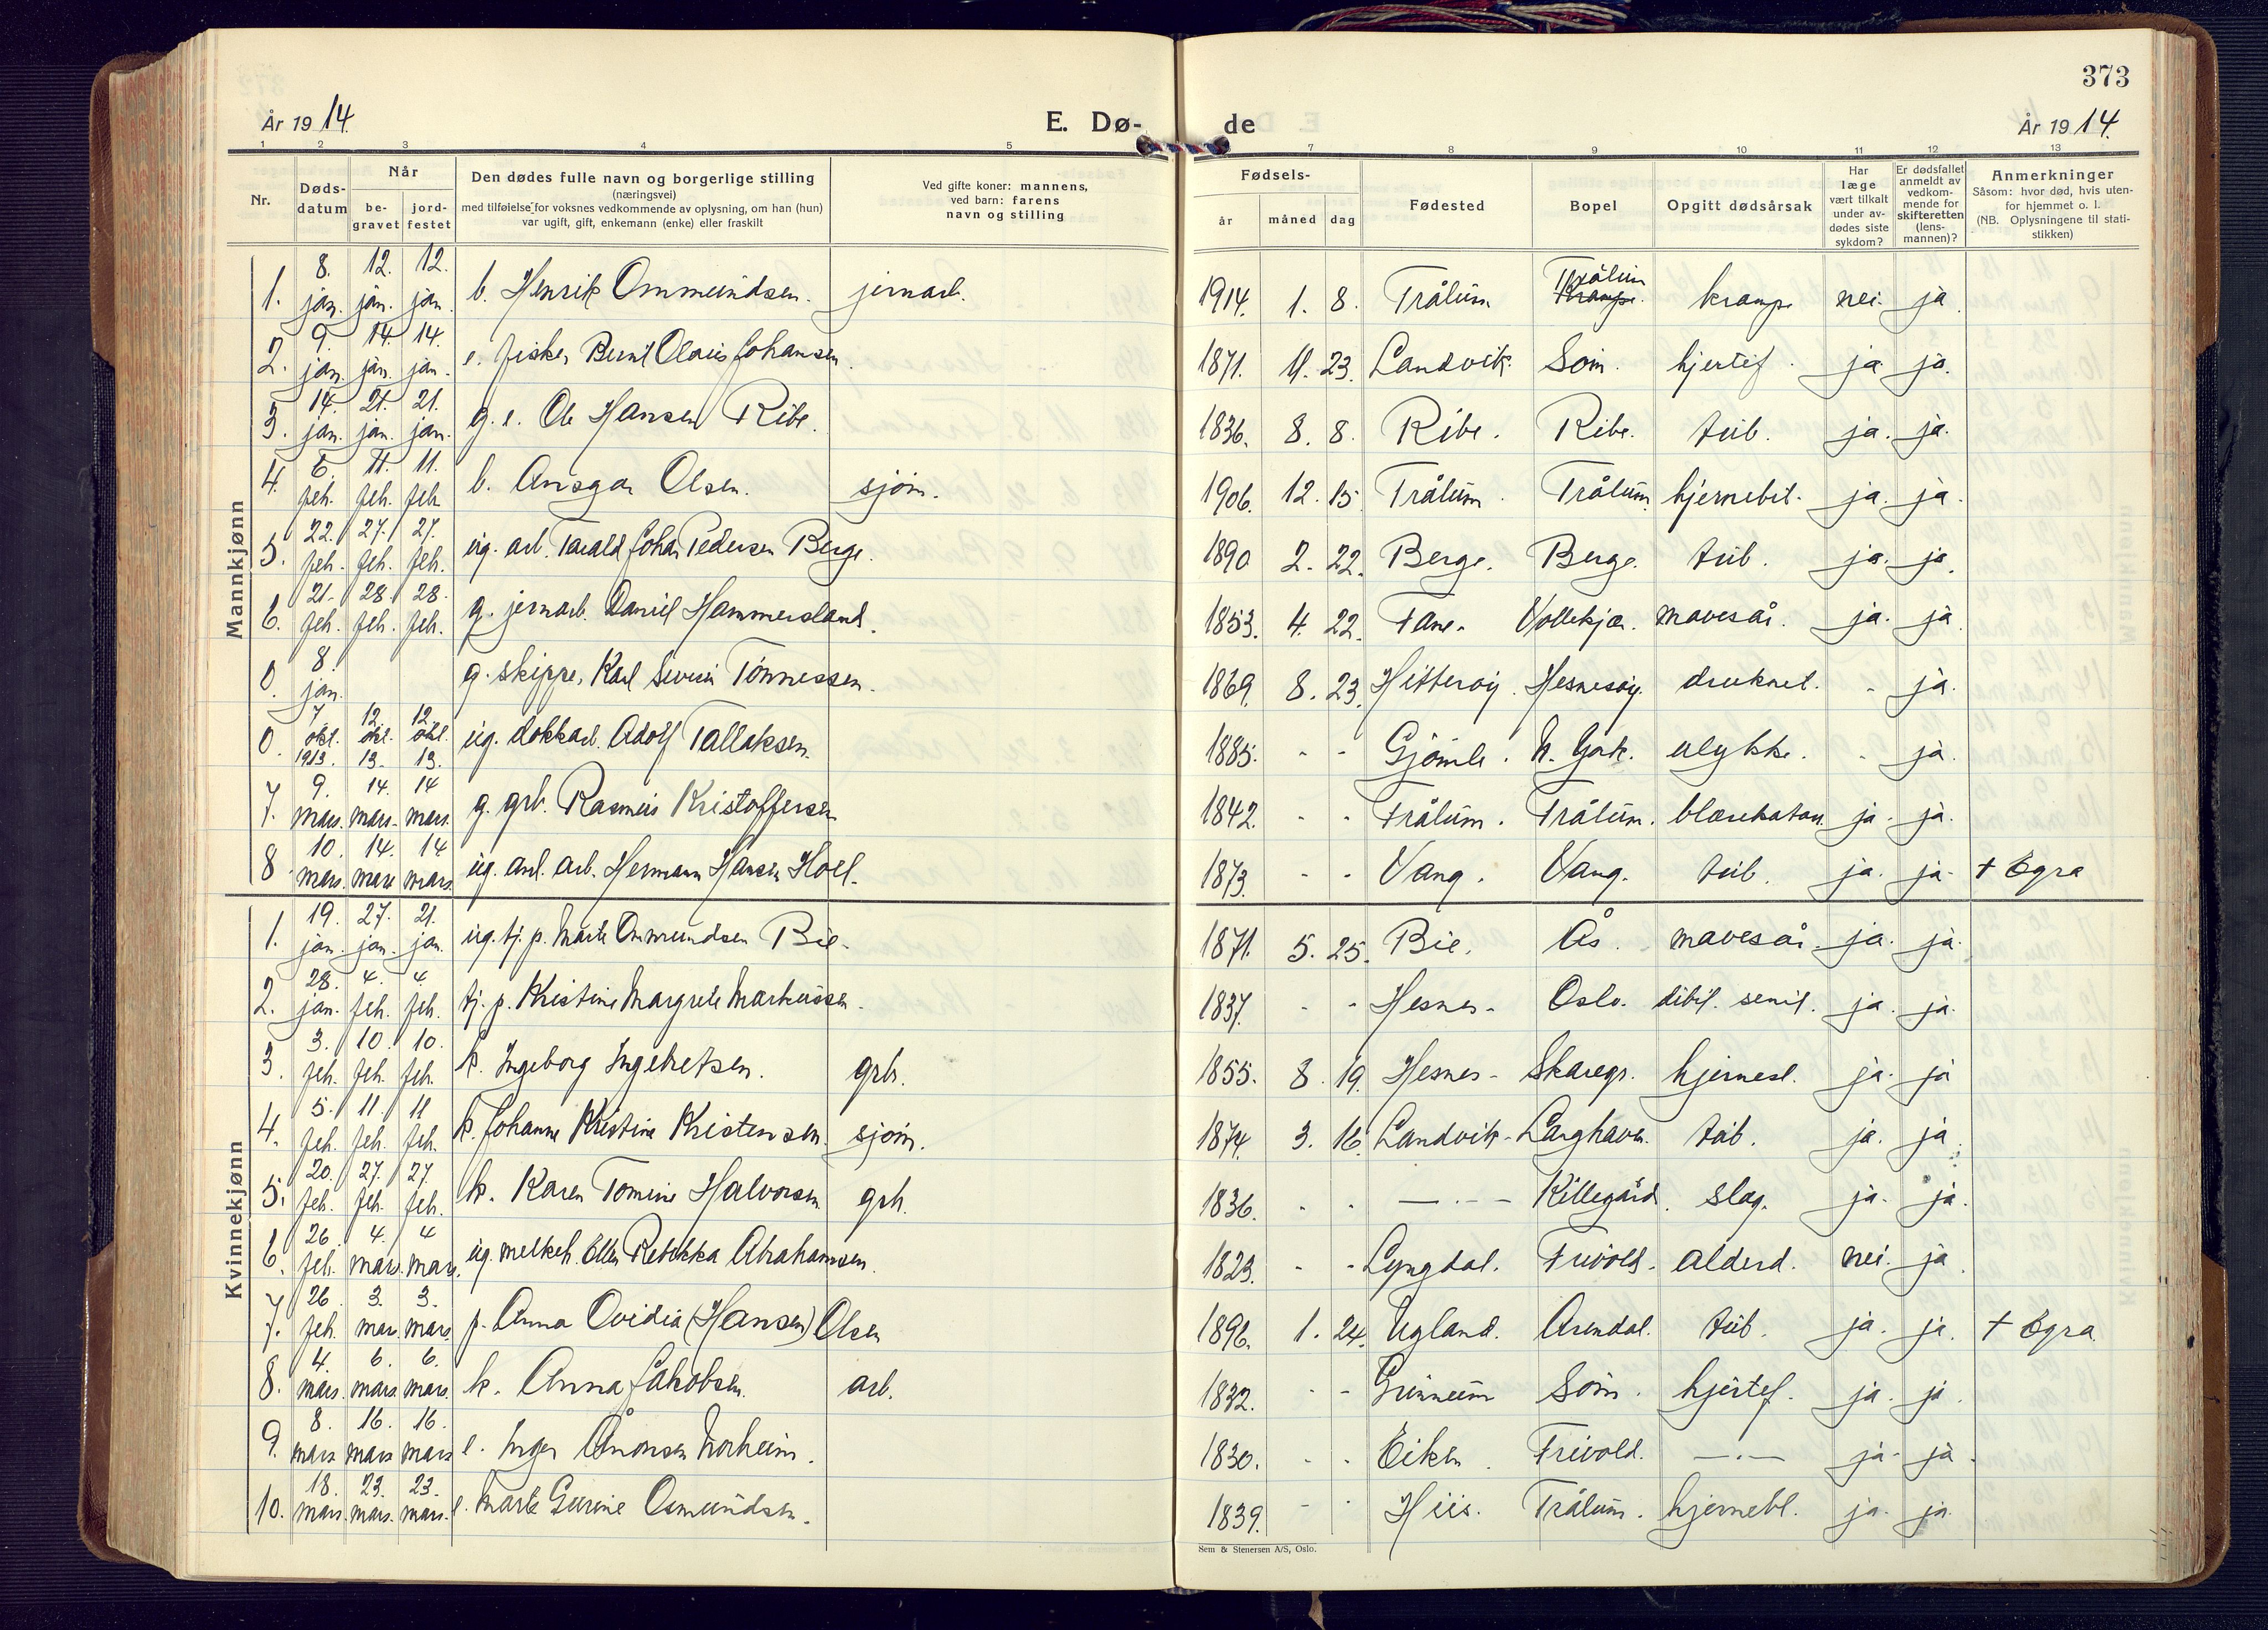 373
År 1914.
E. Dø-
de
År 1914.
1 2 3 4 5 7 8 9 10 11 12 13
Nr.
Døds-
datum
Når
be-
gravet
jord-
festet
Den dødes fulle navn og borgerlige stilling
(næringsvei)
med tilføielse for voksnes vedkommende av oplysning, om han (hun)
var ugift, gift, enkemann (enke) eller fraskilt
Ved gifte koner: mannens,
ved barn: farens
navn og stilling
Fødsels-
år måned dag
Fødested
Bopel
Opgitt dødsårsak
Har
læge
vært tilkalt
under av-
dødes siste
sykdom?
Er dødsfallet
anmeldt av
vedkom-
mende for
skifteretten
(lens-
mannen)?
Anmerkninger
Såsom: hvor død, hvis uten-
for hjemmet o. l.
(NB. Oplysningene til stati-
stikken)
Mannkjønn
1. 8. jan. 12. jan. 12. jan. b. Henrik Ommundsen. jernarb. 1914. 1. 8. Trålum Trålum krampe nei. ja
2. 9. jan. 14. jan. 14. jan. e. fisker Bernt Olaus Johansen. 1871. 11. 23. Landvik. Søm. hjertef. ja ja.
3. 14. jan. 21. jan. 21. jan. g. e. Ole Hansen Ribe. 1836. 8. 8. Ribe. Ribe. tub. ja. ja.
4. 6. feb. 11. feb. 11. feb. b. Ansgar Olsen. sjøm. 1906. 12. 15. Trålum. Trålum. hjernebet. ja. ja.
5. 22. feb. 27. feb. 27. feb. ug. arb. Tarald Johan Pedersen Berge. 1890 2. 22. Berge. Berge. tub. ja. ja.
6. 21. feb. 28. feb. 28. feb. g. jernarb. Daniel Hammersland. 1853. 4. 22. Fane. Vollekjær. mavesår. ja. ja.
0. 8. jan. g. skipper Karl Severin Tønnessen. 1869. 8. 23. Hitterøy. Hesnesøy. druknet. - ja.
0. 7. okt. 1913. 12. okt. 13. 12. okt. 13. ug. dokkarb. Adolf Tallaksen. 1885. - - Gjømle. N. York. ulykke. - ja.
7. 9. mars. 14. mars. 14 mars. g. grb. Rasmus Kristoffersen 1842. - - Trålum. Trålum. blærekatarr. ja. ja.
8 10. mars. 14. mars 14. mars. ug. anl. arb. Hermann Hansen Hoel. 1873. - - Vang. Vang. tub. ja. ja. + Egra
Kvinnekjønn
1. 19. jan. 27. jan. 21. jan. ug. tj. p. Marte Ommundsen Bie. 1871. 5. 25. Bie. Ås. mavesår. ja. ja.
2. 28. jan. 4. feb. 4. feb. tj. p. Kristine Margrete Markussen. 1837. - - Hesnes. Oslo. debil. senil. ja. ja.
3. 3. feb. 10. feb. 10. feb. k. Ingeborg Ingebretsen. grb. 1855. 8. 19. Hesnes. Skaregr. hjernesl. ja. ja
4. 5. feb. 11. feb. 11 feb. k. Johanne Kristine Kristensen. sjøm. 1874. 3. 16. Landvik. Larghaven. tub. ja. ja.
5. 20. feb. 27. feb. 27. feb. k. Karen Tomine Halvorsen grb. 1836. - - —.— Killegård. slag. ja. ja.
6. 26. feb. 4. mars. 4 mars. ug. melkeh. Ellen Rebekka Abrahamsen. 1823. - - Lyngdal. Frivold. alderd. nei. ja.
7. 26. feb. 3. mars. 3. mars. p. Anna Ovidia (Hansen) Olsen 1896. 1. 24. Ugland. Arendal. tub. ja. ja. + Egra.
8. 4. mars. 6. mars. 6. mars. k. Anna Jakobsen. arb. 1832. - - Grimeum Søm. hjertef. ja. ja.
9. 8. mars 16. mars 16. mars e. Inger Ånonsen Norheim. 1830. - - Eiken. Frivold. —.— ja. ja.
10. 18. mars. 23. mars. 23. mars. e. Marte Gurine Osmundsen. 1839. - - Hiis. Trålum. hjernebl. ja. ja.
Sem & Stenersen A/S, Oslo.